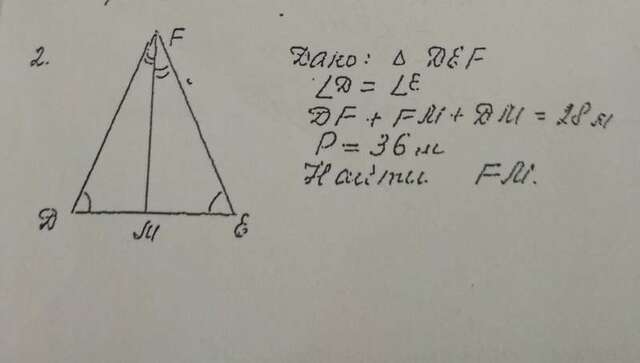 2.
F
Дано: △ DEF
∠D = ∠E
DF + FM + DM = 28 м
P = 36 м
Найти FM.
D
M
E